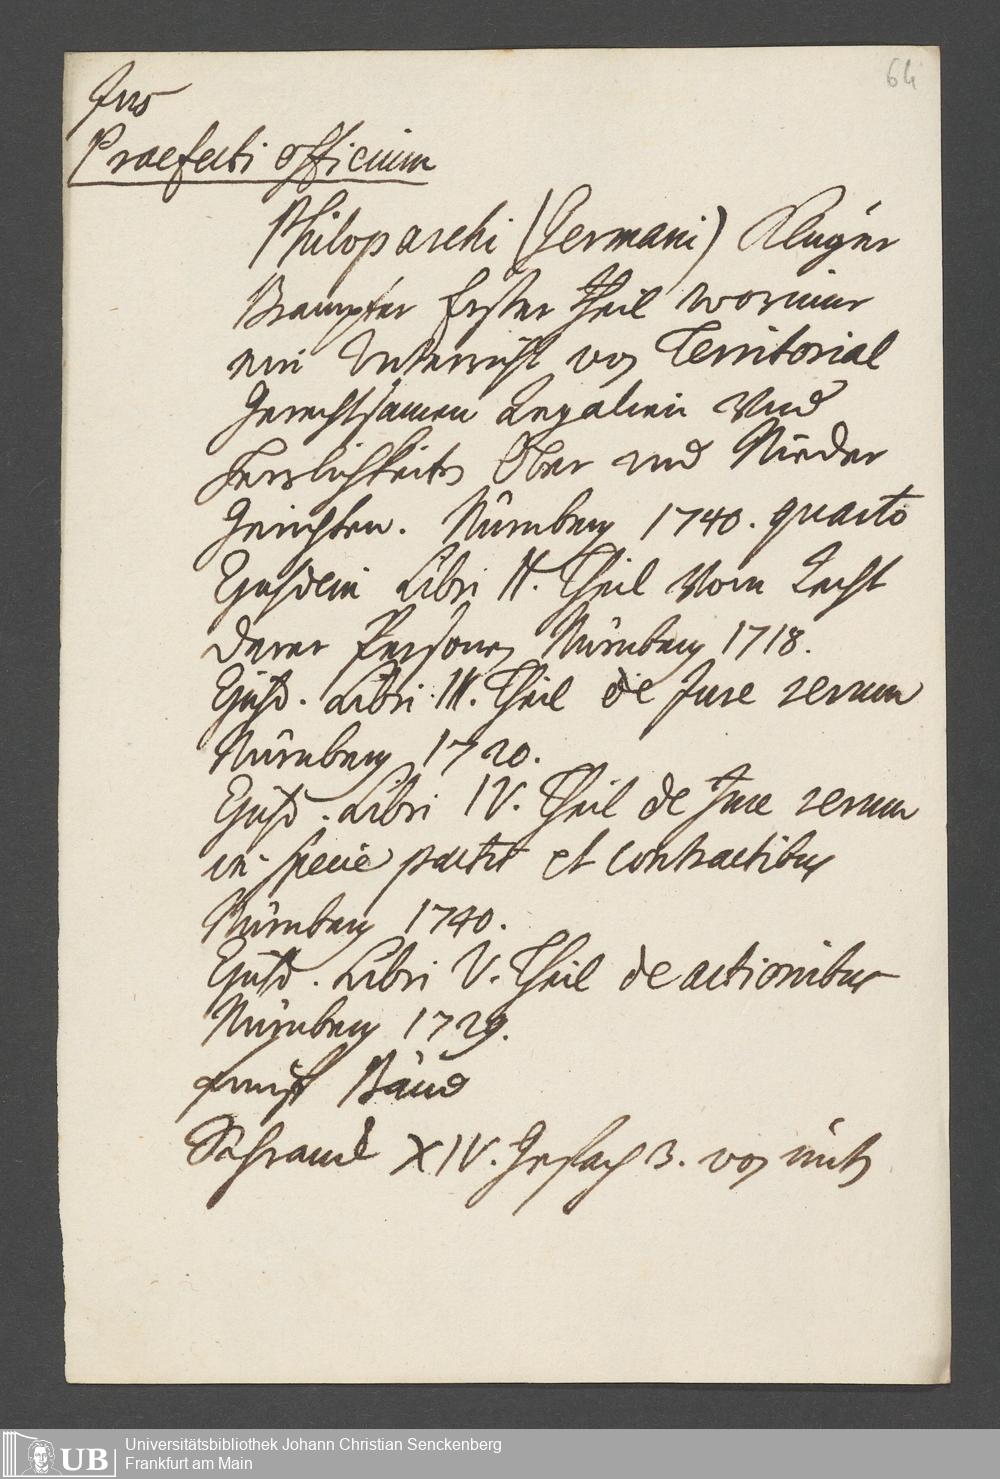 64
Jus
Praefecti officium
Philoparchi (Germani) Kluger
Beampter Erster Theil worinnen
ein Unterricht von Territorial
Gerechtsamen Regalien Und
Herrlichkeiten Ober und Nieder
Gerichten. Nürnberg 1740. quarto
Ejusdem Libri II. Theil Vom Recht
derer Personen Nürnberg 1718.
Ejusd. Libri III. Theil de Jure rerum
Nürnberg 1720.
Ejusd. Libri IV. Theil de Jure rerum
in specie pactis et contractibus
Nürnberg 1740.
Ejusd. Libri V. Theil de actionibus
Nürnberg 1729.
Bänd
Schranck XIV. Gefach 3. von
UB
Universitätsbibliothek Johann Christian Senckenberg
Frankfurt am Main